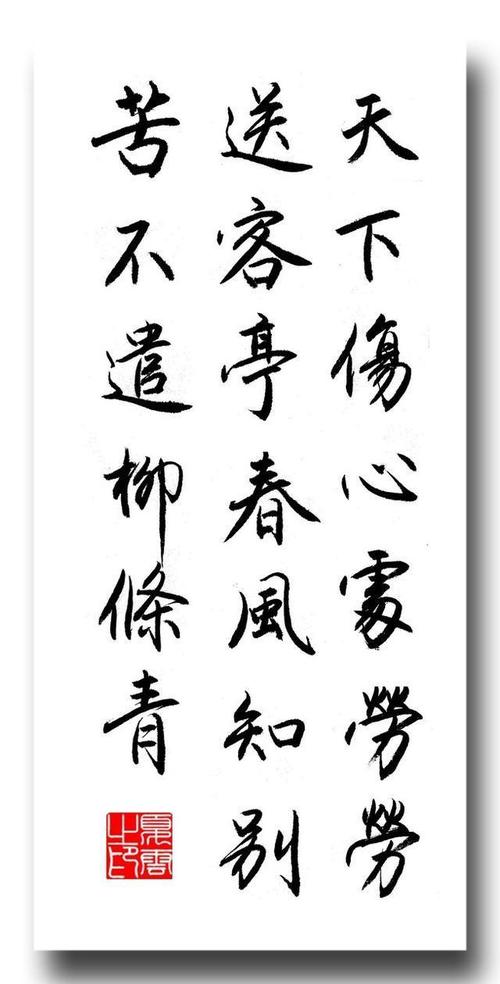 天下傷心處勞勞
送客亭春風知別
苦不遣柳條青
夏雲之印